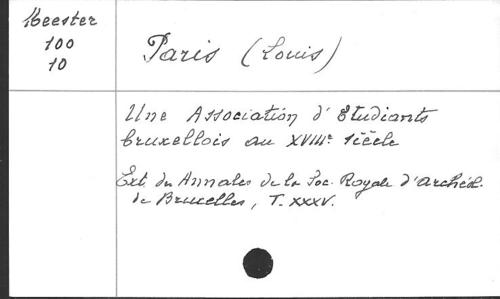 Meester
100
10
Paris (Louis)
Une Association d'Etudiants
bruxellois au XVIIIe siècle
Ext. des Annales de la Soc. Royale d'archéol.
de Bruxelles, T. XXXV.